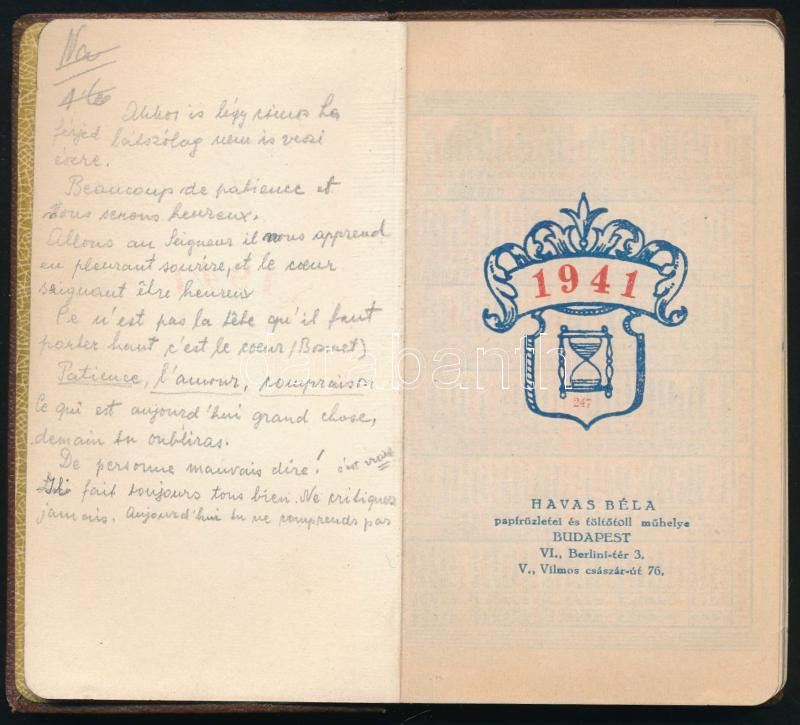 Akkor is légy csinos ha
férjed látszólag nem is veszi
észre.
Beaucoup de patience et
Nous serons heureux.
Allons au Seigneur il nous apprend
en pleurant sourire, et le cœur
saignant être heureux
Ce n'est pas la tête qu'il faut
porter haut c'est le cœur (Bossuet)
Patience, l'amour,
Ce qui est aujourd'hui grand chose,
demain tu oubliras.
De personne mauvais dire! c'est vraie
fait toujours tous bien. Ne critiquez
jamais. Aujourd'hui tu ne comprends pas
1941
247
HAVAS BÉLA
papírüzletei és töltőtoll műhelye
BUDAPEST
VI., Berlini-tér 3.
V., Vilmos császár-út 76.
darabanth